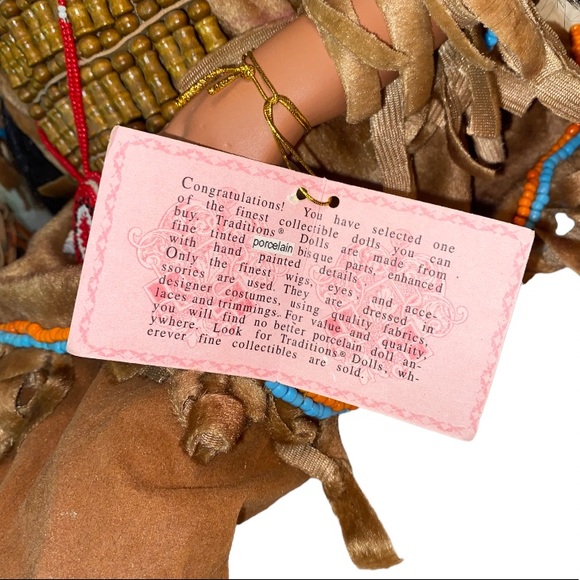 Congratulations! You have selected one
of the finest collectible dolls you can
buy. Traditions® Dolls are made from
fine tinted porcelain bisque parts, enhanced
with hand painted details.
Only the finest wigs, eyes, and acce-
ssories are used. They are dressed in
designer costumes, using quality fabrics,
laces and trimmings. For value and quality
you will find no better porcelain doll an-
ywhere. Look for Traditions® Dolls, wh-
erever fine collectibles are sold.